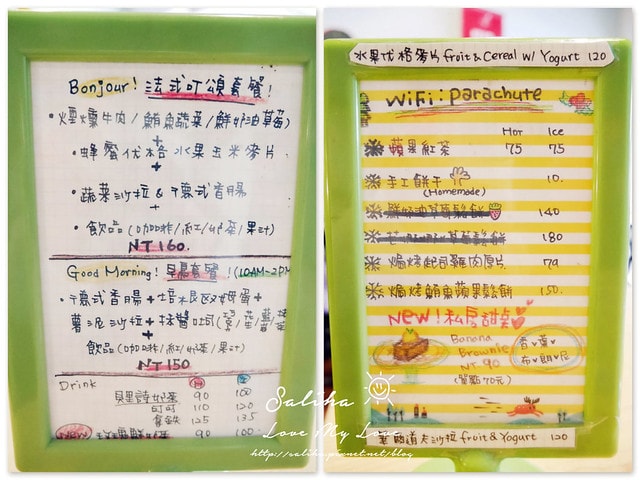 Bonjour! 法式可頌套餐!
・煙燻牛肉/鮪魚蔬菜/鮮奶油草莓
+
・蜂蜜优格水果玉米麥片
+
・蔬菜沙拉&德式香腸
+
・飲品(咖啡/紅/奶茶/果汁)
NT 160.
Good Morning! 早晨套餐!(10AM-2PM
・德式香腸+培根
薯泥沙拉+抹醬吐司
飲品(咖啡/紅/奶茶/果汁)
NT 150
Drink
貝里詩奶茶 90 100
可可 110 120
拿鐵 125 135
New 90 100
水果优格麥片 fruit & Cereal w/ Yogurt 120
WiFi: parachute
Hot Ice
蘋果紅茶 75 75
手工餅干 10.
(Homemade)
鮮奶油草莓鬆餅 140
草莓鬆餅 180
焗烤起司雞肉厚片 79
焗烤鮪魚蘋果鬆餅 150.
New! 私房甜點
Banana
Brownie
NT 90
(單點70元)
香蕉
布朗尼
沙拉 fruit & Yogurt 120
Salika
Love My Love
http://salika.pixnet.net/blog